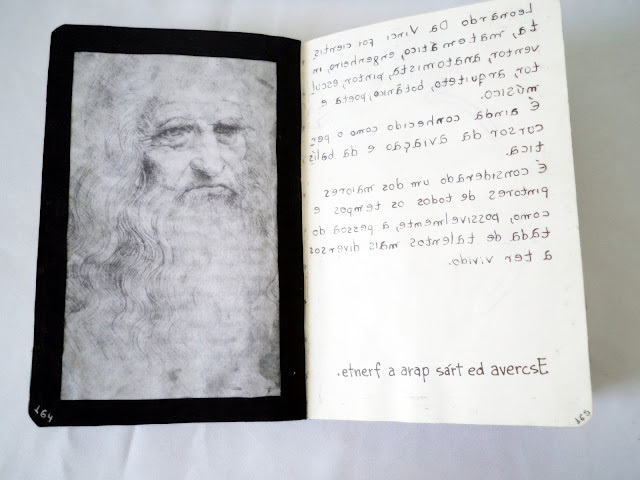 Leonardo Da Vinci foi cientis
ta, matemático, engenheiro, in
ventor, anatomista, pintor, escul
tor, arquiteto, botânico, poeta e
músico.
É ainda conhecido como o per
cursor da aviação e da balís
tica.
É considerado um dos maiores
pintores de todos os tempos e
como, possivelmente, a pessoa do
tada de talentos mais diversos
a ter vivido.
.etnerf a arap sárt ed avercsE
164
165